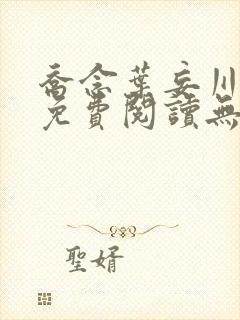 喬念葉妄川
免費閱讀無
聖婿